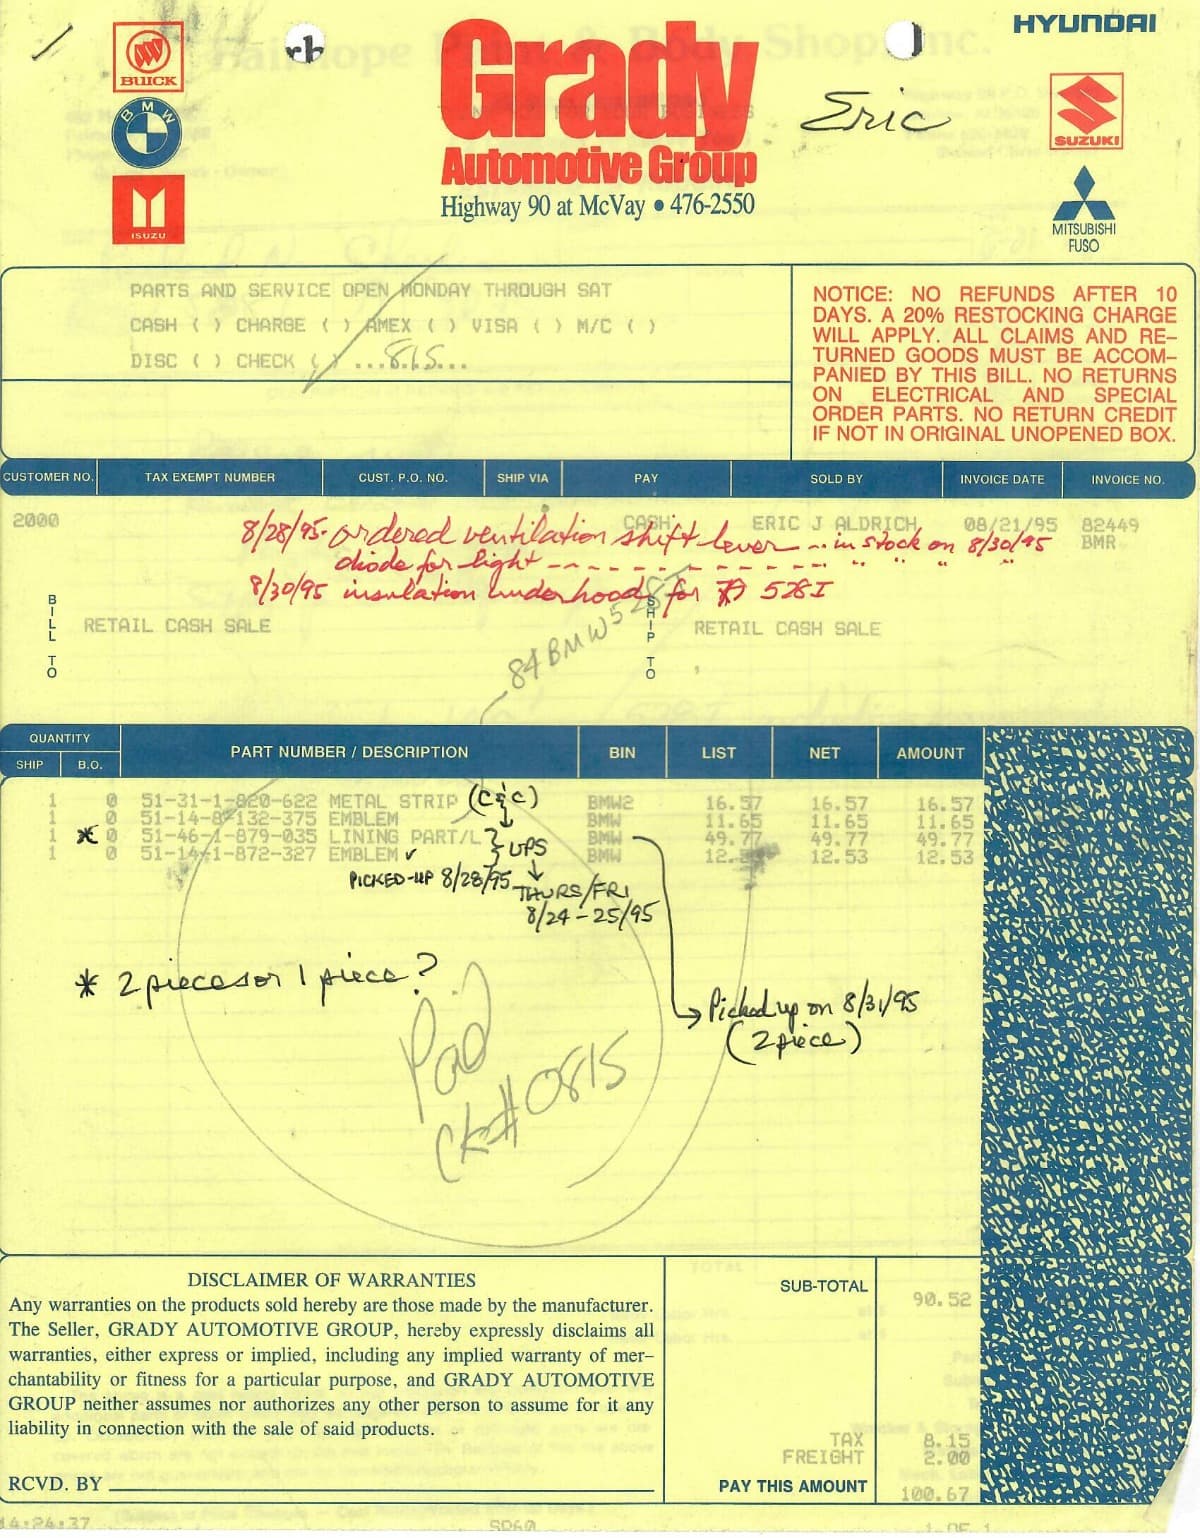 BUICK
BMW
ISUZU
Grady
Automotive Group
Highway 90 at McVay • 476-2550
Eric
HYUNDAI
SUZUKI
MITSUBISHI
FUSO
PARTS AND SERVICE OPEN MONDAY THROUGH SAT
CASH ( ) CHARGE ( ) AMEX ( ) VISA ( ) M/C ( )
DISC ( ) CHECK ( ) ...815...
NOTICE: NO REFUNDS AFTER 10
DAYS. A 20% RESTOCKING CHARGE
WILL APPLY. ALL CLAIMS AND RE-
TURNED GOODS MUST BE ACCOM-
PANIED BY THIS BILL. NO RETURNS
ON ELECTRICAL AND SPECIAL
ORDER PARTS. NO RETURN CREDIT
IF NOT IN ORIGINAL UNOPENED BOX.
CUSTOMER NO. TAX EXEMPT NUMBER CUST. P.O. NO. SHIP VIA PAY SOLD BY INVOICE DATE INVOICE NO.
2000 CASH ERIC J ALDRICH 08/21/95 82449
BMR
8/28/95 - ordered ventilation shift lever -- in stock on 8/30/95
diode for light - - - - - - - - - - - - " " " "
8/30/95 insulation underhood for 528I
BILL TO
RETAIL CASH SALE
SHIP TO
RETAIL CASH SALE
84 BMW 528I
QUANTITY
SHIP B.O. PART NUMBER / DESCRIPTION BIN LIST NET AMOUNT
1 0 51-31-1-820-622 METAL STRIP (C&C) BMW2 16.57 16.57 16.57
1 0 51-14-8-132-375 EMBLEM BMW 11.65 11.65 11.65
1 * 0 51-46-1-879-035 LINING PART/L BMW 49.77 49.77 49.77
1 0 51-14-1-872-327 EMBLEM ✓ BMW 12.53 12.53
UPS
PICKED-UP 8/28/95
THURS/FRI
8/24-25/95
* 2 pieces or 1 piece?
Picked up on 8/31/95
(2 piece)
Paid
CK# 0815
DISCLAIMER OF WARRANTIES
Any warranties on the products sold hereby are those made by the manufacturer.
The Seller, GRADY AUTOMOTIVE GROUP, hereby expressly disclaims all
warranties, either express or implied, including any implied warranty of mer-
chantability or fitness for a particular purpose, and GRADY AUTOMOTIVE
GROUP neither assumes nor authorizes any other person to assume for it any
liability in connection with the sale of said products.
RCVD. BY
SUB-TOTAL 90.52
TAX 8.15
FREIGHT 2.00
PAY THIS AMOUNT 100.67
14:24:37 SP60 1 OF 1